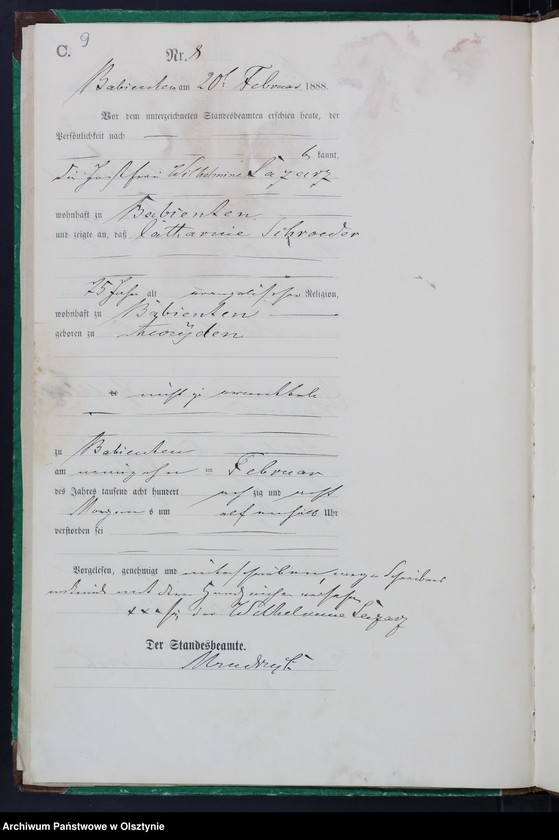 C. 9
Nr. 8
Babienten am 20t Februar 1888.
Vor dem unterzeichneten Standesbeamten erschien heute, der
Persönlichkeit nach
be kannt,
die Wilhelmine Lazarz
wohnhaft zu Babienten
und zeigte an, daß Catharine Schroeder
75 Jahr alt evangelischer Religion,
wohnhaft zu Babienten
geboren zu
nicht zu ermitteln
zu Babienten
am neunzehn ten Februar
des Jahres tausend acht hundert acht zig und acht
Morgens um elf einhalb Uhr
verstorben sei
Vorgelesen, genehmigt und unterschrieben, wegen Schreibens
mit dem Handzeichen versehen
+ + + für die Wilhelmine Lazarz
Der Standesbeamte.
Archiwum Państwowe w Olsztynie